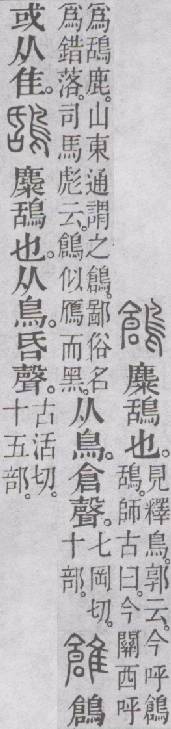 鶬 麋鴰也。見釋鳥。郭云。今呼鶬
鴰。師古曰。今關西呼
爲鴰鹿。山東通謂之鶬。鄙俗名
爲錯落。司馬彪云。鶬似鴈而黑。从鳥。倉聲。七岡切。
十部。鶬
或从隹。鴰 麋鴰也。从鳥。昏聲。古活切。
十五部。